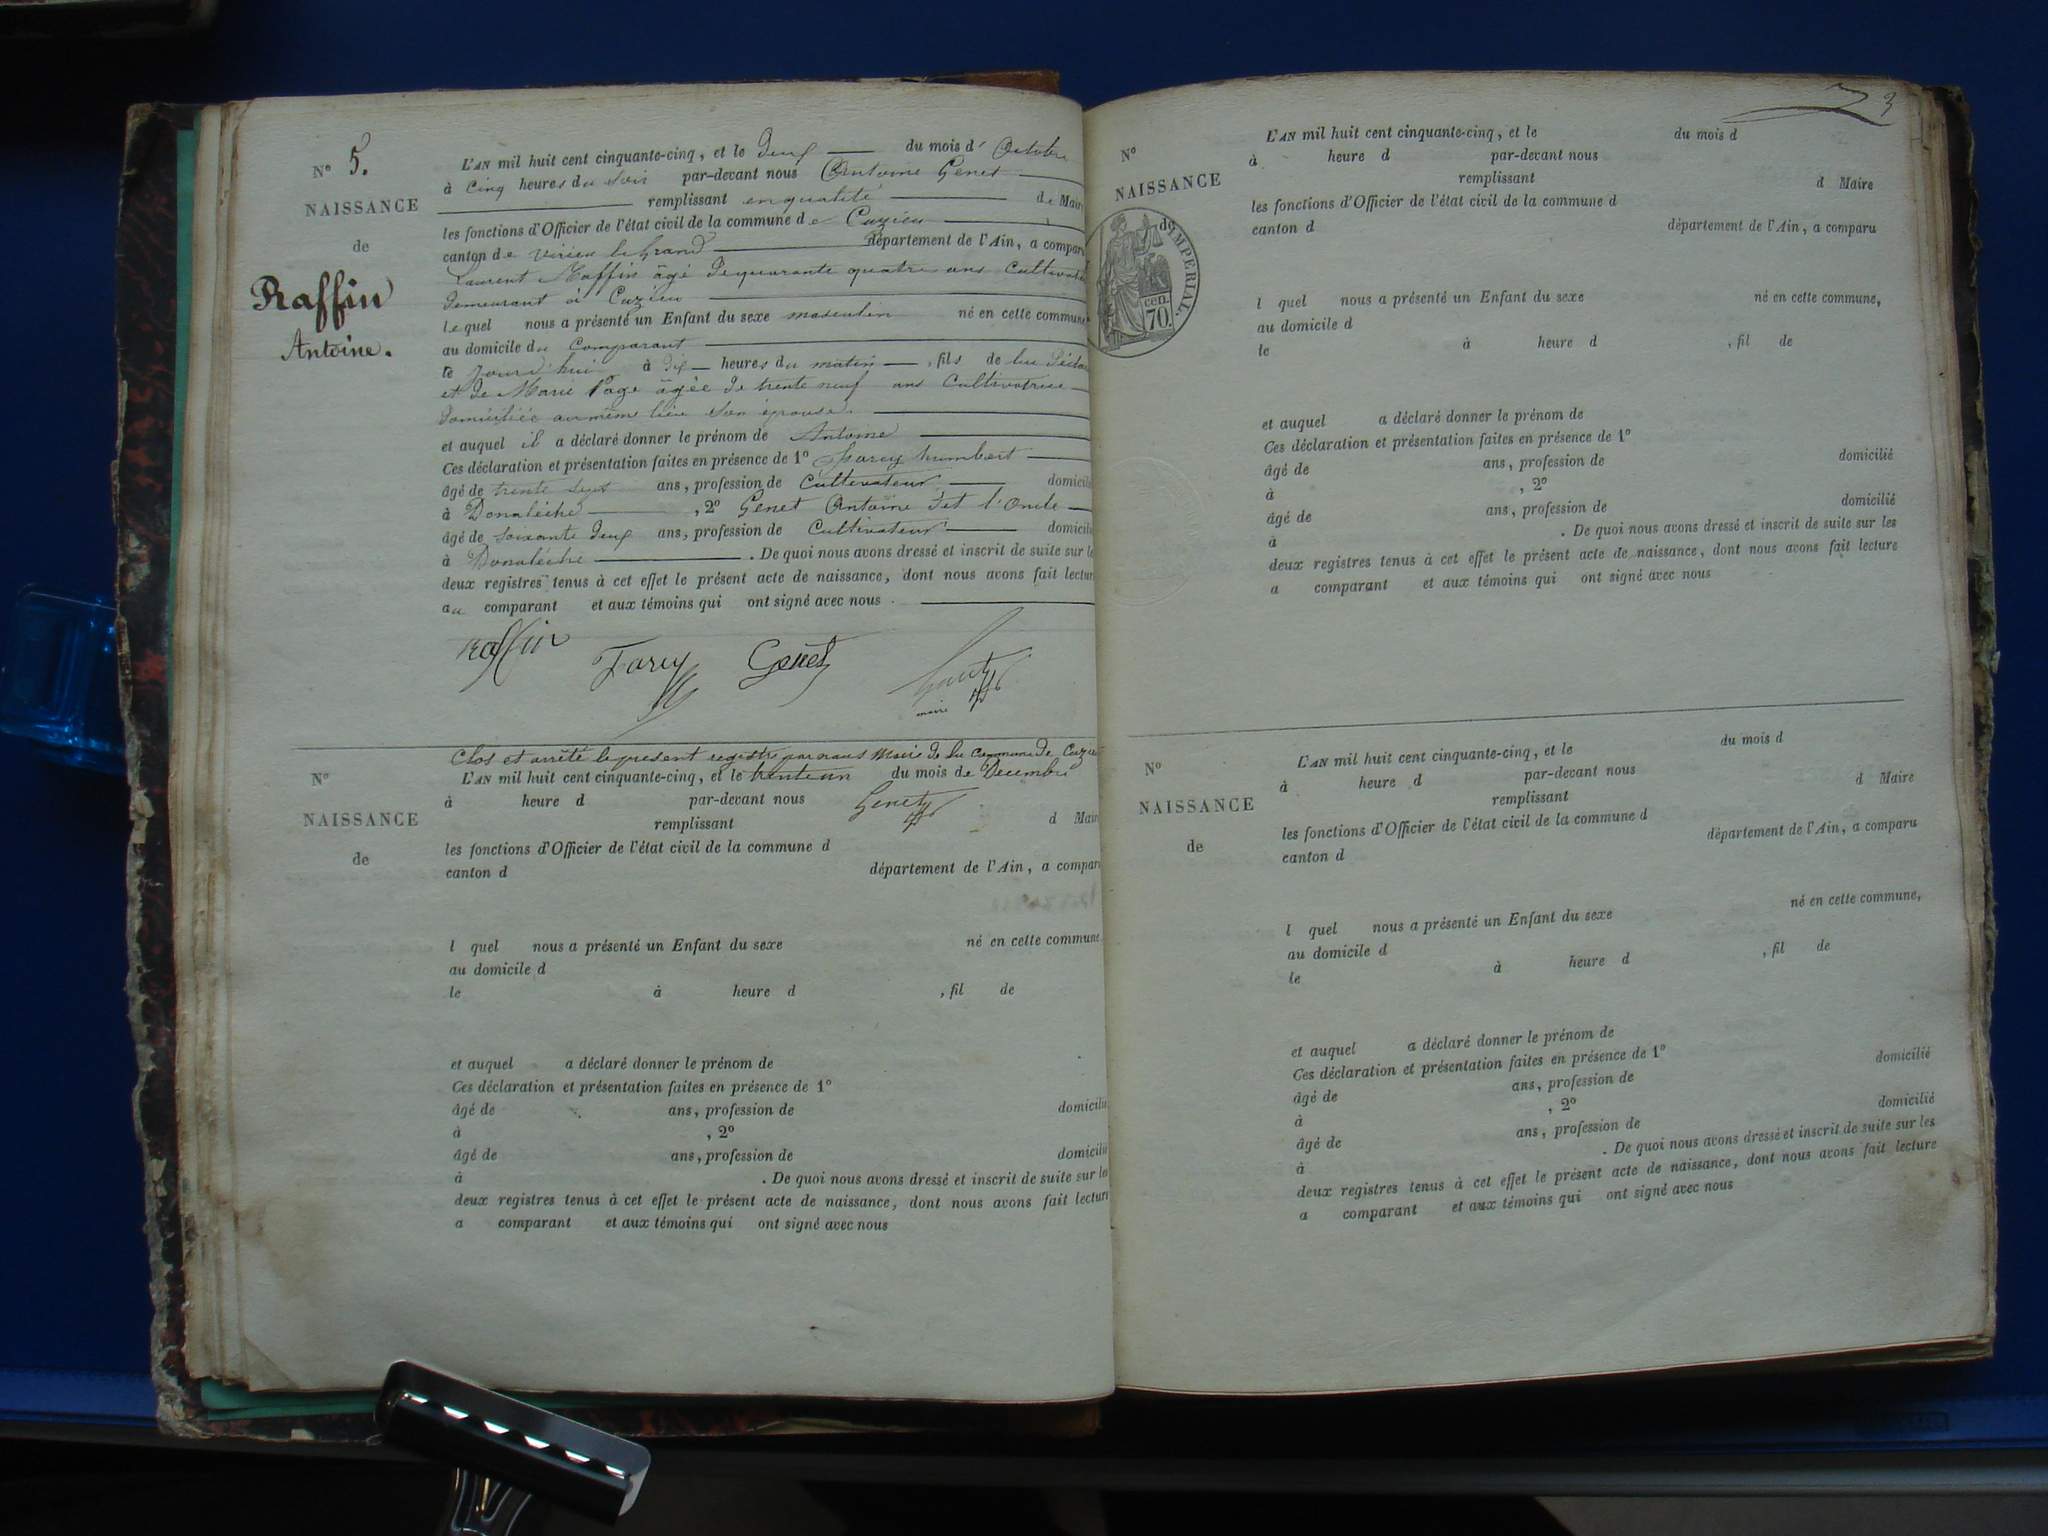 N° 5.
NAISSANCE
de
Raffin
Antoine.
L'AN mil huit cent cinquante-cinq, et le deux du mois d' Octobre
à cinq heures du soir par-devant nous Antoine Genet
remplissant en qualité de Maire
les fonctions d'Officier de l'état civil de la commune de Cuzieu
canton de Virieu le Grand département de l'Ain, a comparu
Laurent Raffin âgé de quarante quatre ans Cultivateur
demeurant à Cuzieu
lequel nous a présenté un Enfant du sexe masculin né en cette commune
au domicile du Comparant
le jourd'hui à dix heures du matin, fils de lui
et de Marie Page âgée de trente neuf ans Cultivatrice
domiciliée au même lieu son épouse.
et auquel il a déclaré donner le prénom de Antoine
Ces déclaration et présentation faites en présence de 1° humbert
âgé de trente sept ans, profession de Cultivateur domicilié
à Donalèche, 2° Genet Antoine dit l'Oncle
âgé de soixante deux ans, profession de Cultivateur domicilié
à Donalèche. De quoi nous avons dressé et inscrit de suite sur le
deux registres tenus à cet effet le présent acte de naissance, dont nous avons fait lecture
au comparant et aux témoins qui ont signé avec nous.
Raffin Farcy Genet Genet
maire
Clos et arrêté le present registre par nous Maire de la Commune de Cuzieu
N°
NAISSANCE
de
L'AN mil huit cent cinquante-cinq, et le trente un du mois de Decembre
à heure d par-devant nous Genet
remplissant d Maire
les fonctions d'Officier de l'état civil de la commune d
canton d département de l'Ain, a comparu
l quel nous a présenté un Enfant du sexe né en cette commune
au domicile d
le à heure d , fil de
et auquel a déclaré donner le prénom de
Ces déclaration et présentation faites en présence de 1°
âgé de ans, profession de domicilié
à , 2°
âgé de ans, profession de domicilié
à . De quoi nous avons dressé et inscrit de suite sur les
deux registres tenus à cet effet le présent acte de naissance, dont nous avons fait lecture
a comparant et aux témoins qui ont signé avec nous
3
N°
NAISSANCE
de
IMPERIAL.
70.
cen.
L'AN mil huit cent cinquante-cinq, et le du mois d
à heure d par-devant nous
remplissant d Maire
les fonctions d'Officier de l'état civil de la commune d
canton d département de l'Ain, a comparu
l quel nous a présenté un Enfant du sexe né en cette commune,
au domicile d
le à heure d , fil de
et auquel a déclaré donner le prénom de
Ces déclaration et présentation faites en présence de 1°
âgé de ans, profession de domicilié
à , 2°
âgé de ans, profession de domicilié
à . De quoi nous avons dressé et inscrit de suite sur les
deux registres tenus à cet effet le présent acte de naissance, dont nous avons fait lecture
a comparant et aux témoins qui ont signé avec nous
N°
NAISSANCE
de
L'AN mil huit cent cinquante-cinq, et le du mois d
à heure d par-devant nous
remplissant d Maire
les fonctions d'Officier de l'état civil de la commune d
canton d département de l'Ain, a comparu
l quel nous a présenté un Enfant du sexe né en cette commune,
au domicile d
le à heure d , fil de
et auquel a déclaré donner le prénom de
Ces déclaration et présentation faites en présence de 1°
âgé de ans, profession de domicilié
à , 2°
âgé de ans, profession de domicilié
à . De quoi nous avons dressé et inscrit de suite sur les
deux registres tenus à cet effet le présent acte de naissance, dont nous avons fait lecture
a comparant et aux témoins qui ont signé avec nous